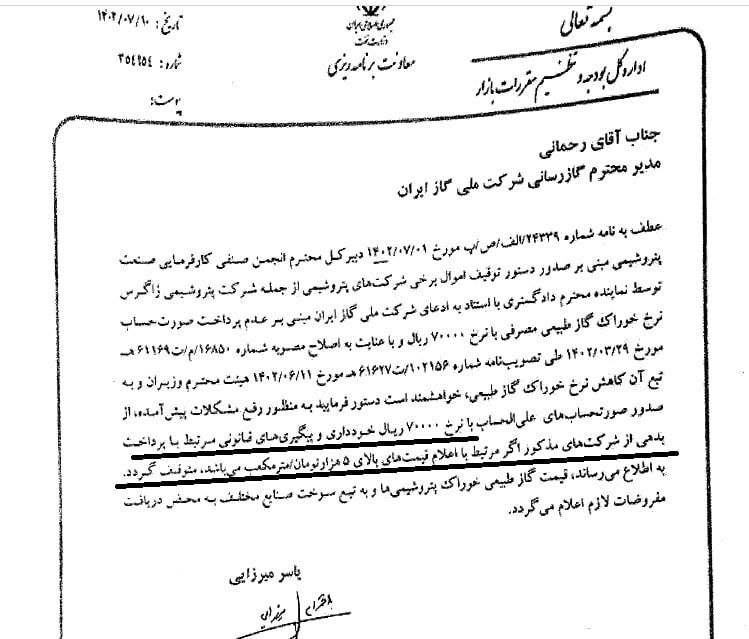 بسمه تعالی
جمهوری اسلامی ایران
وزارت نفت
معاونت برنامه ریزی
اداره کل بودجه و تنظیم مقررات بازار
تاریخ: ۱۴۰۲/۰۷/۱۰
شماره: ۳۵۴۹۵۴
پیوست:
جناب آقای رحمانی
مدیر محترم گازرسانی شرکت ملی گاز ایران
عطف به نامه شماره ۲۴۳۳۹/الف/ص/پ مورخ ۱۴۰۲/۰۷/۰۱ دبیرکل محترم انجمن صنفی کارفرمایی صنعت
پتروشیمی مبنی بر صدور دستور توقیف اموال برخی شرکت‌های پتروشیمی از جمله شرکت پتروشیمی زاگرس
توسط نماینده محترم دادگستری با استناد به ادعای شرکت ملی گاز ایران مبنی بر عدم پرداخت صورت‌حساب
نرخ خوراک گاز طبیعی مصرفی با نرخ ۷۰۰۰۰ ریال و با عنایت به اصلاح مصوبه شماره ۱۶۸۵۰/م/ت۶۱۱۶۹هـ
مورخ ۱۴۰۲/۰۳/۲۹ طی تصویب‌نامه شماره ۱۰۲۱۵۶/ت۶۱۶۲۷هـ مورخ ۱۴۰۲/۰۶/۱۱ هیئت محترم وزیران و به
تبع آن کاهش نرخ خوراک گاز طبیعی، خواهشمند است دستور فرمایید به منظور رفع مشکلات پیش‌آمده، از
صدور صورتحساب‌های علی‌الحساب با نرخ ۷۰۰۰۰ ریال خودداری و پیگیری‌های قانونی مرتبط با پرداخت
بدهی از شرکت‌های مذکور اگر مرتبط با اعلام قیمت‌های بالای ۵ هزارتومان/مترمکعب می‌باشد، متوقف گردد.
به اطلاع می‌رساند، قیمت گاز طبیعی خوراک پتروشیمی‌ها و به تبع سوخت صنایع مختلف به محض دریافت
مفروضات لازم اعلام می‌گردد.
یاسر میرزایی